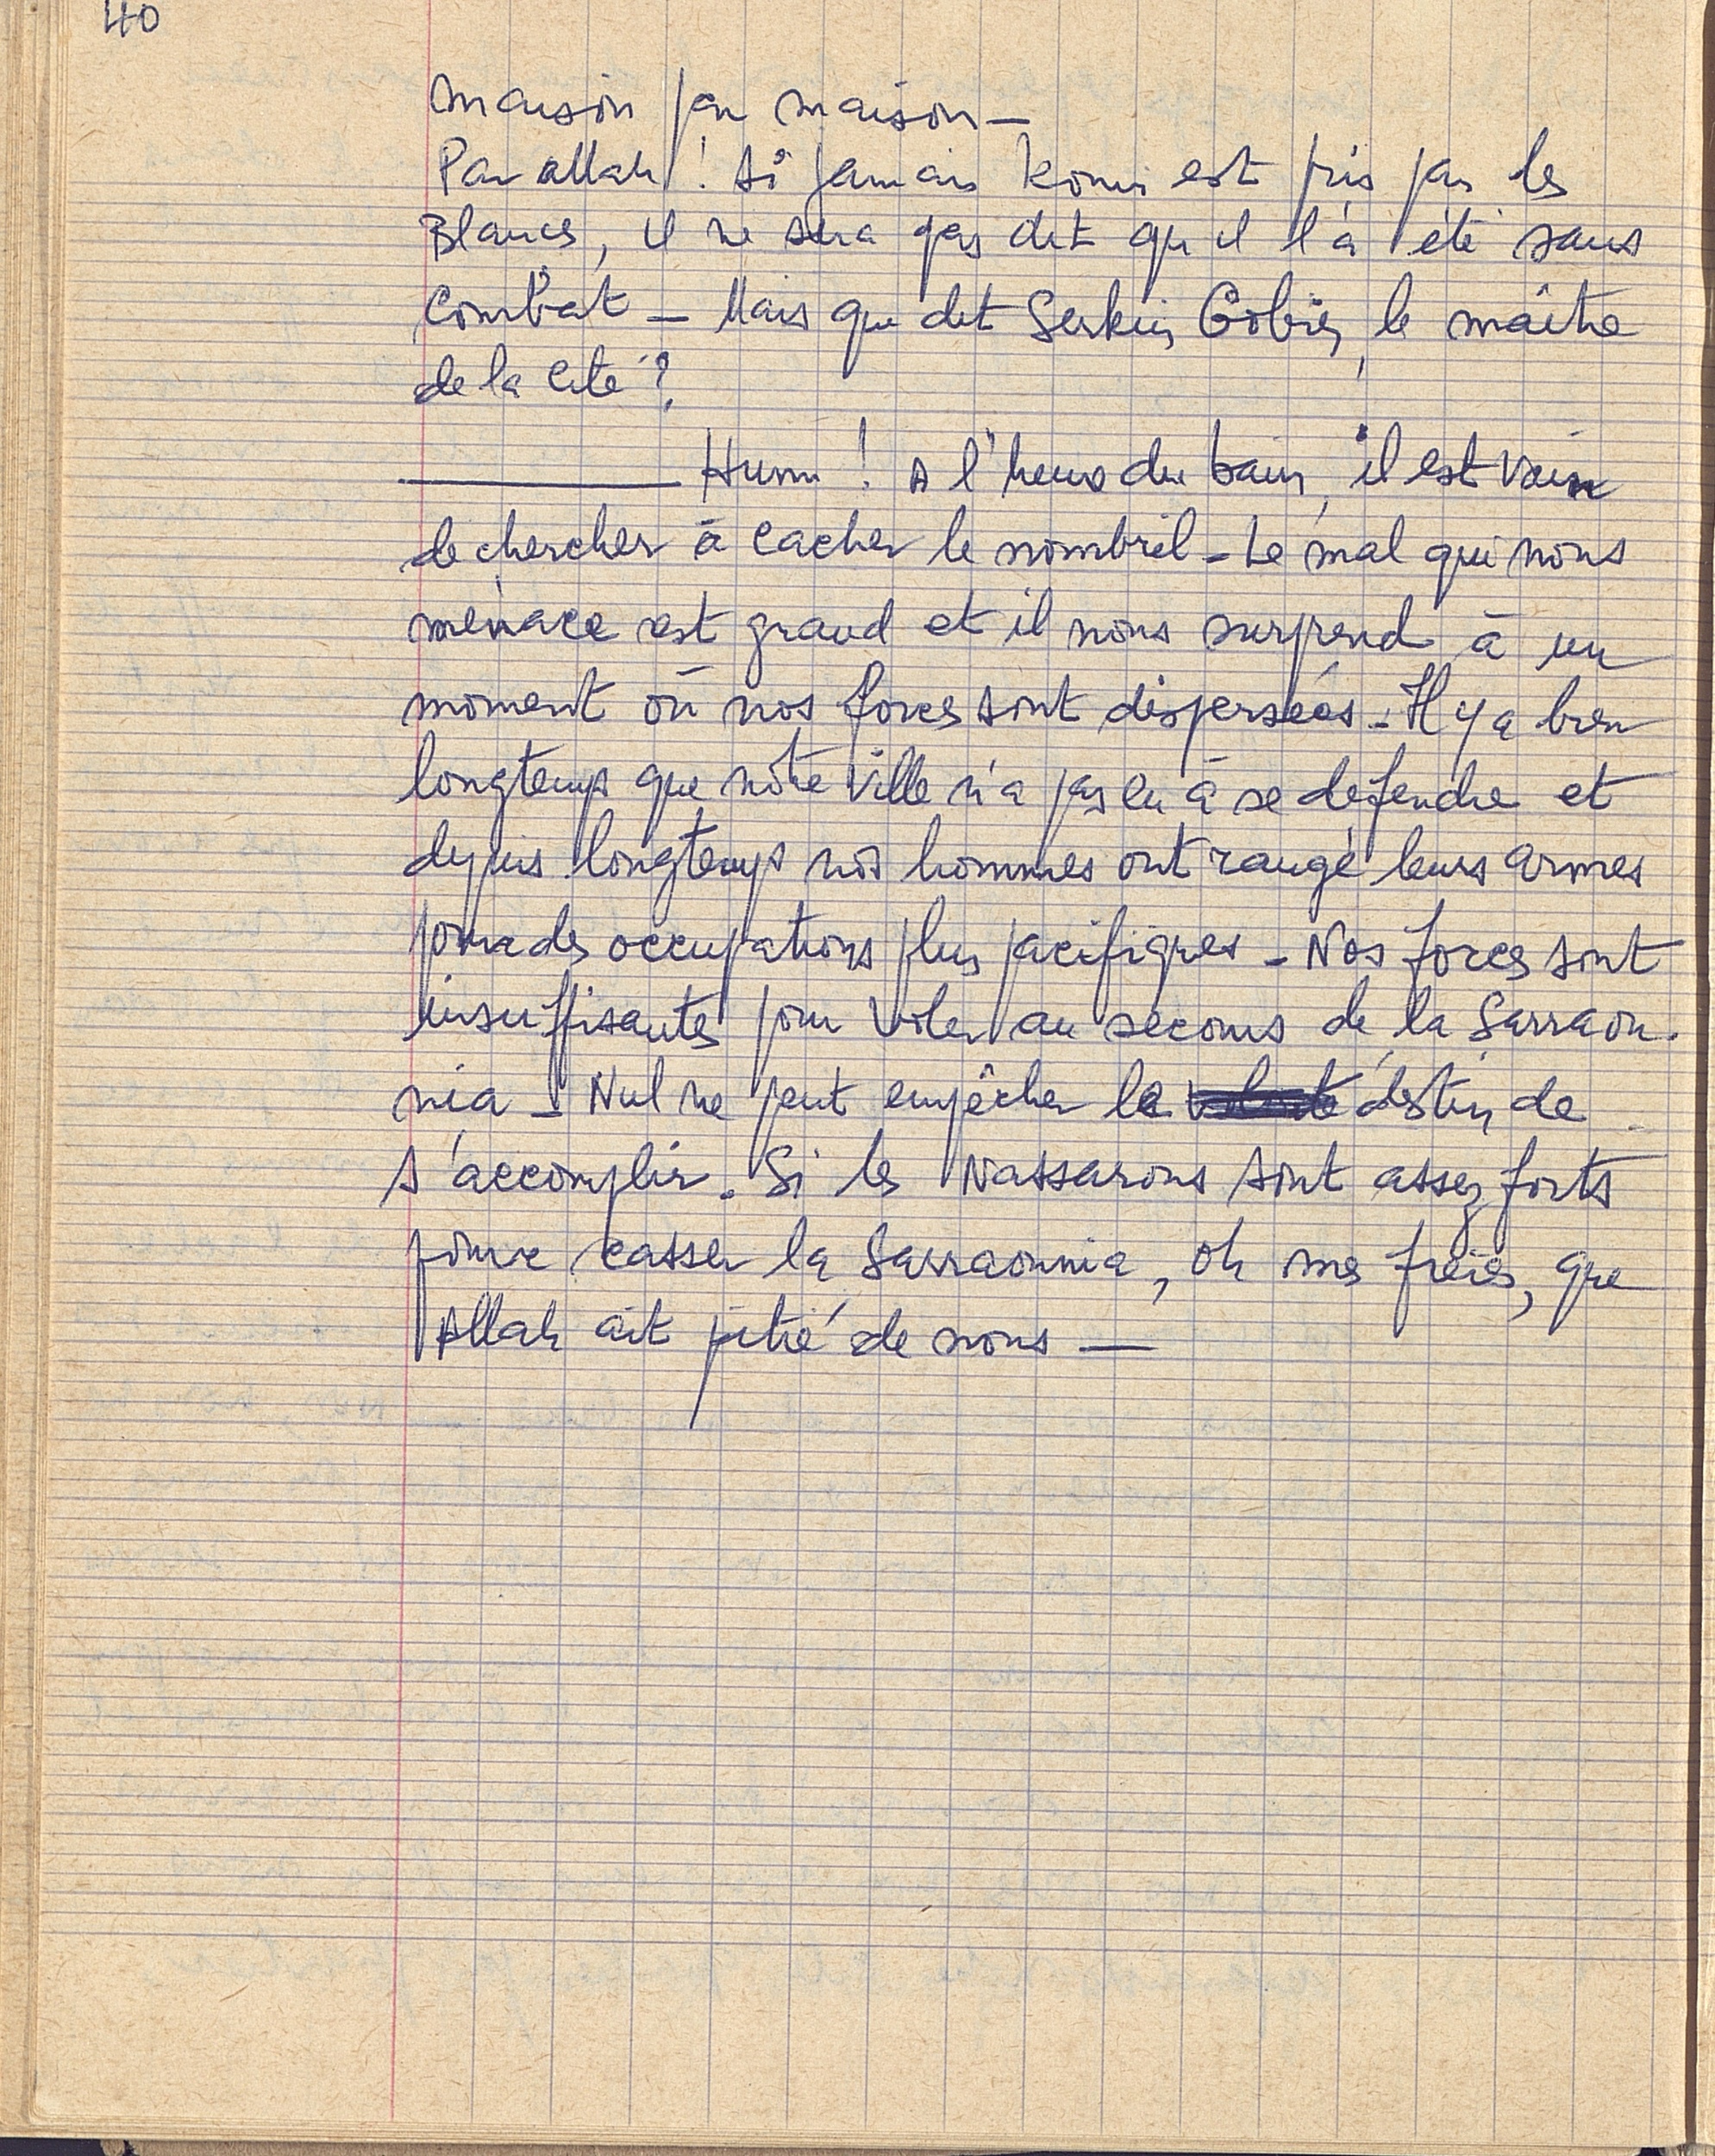 40
maison par maison _
Par allah ! si jamais Konni est pris par les
Blancs, il ne sera pas dit qu'il l'a été sans
combat _ Mais que dit Serkin Gobir, le maître
de la cité ?
_____ Humm ! A l'heure du bain, il est vain
de chercher à cacher le nombril _ Le mal qui nous
menace est grand et il nous surprend à un
moment où nos forces sont dispersées _ Il y a bien
longtemps que notre ville n'a pas eu à se defendre et
depuis longtemps nos hommes ont rangé leurs armes
pour des occupations plus pacifiques _ Nos forces sont
insuffisantes pour voler au secours de la Sarraou-
nia _ Nul ne peut empêcher le destin de
s'accomplir. Si les Nassarous sont assez forts
pour casser la Sarraounia, oh mes frères, que
Allah ait pitié de nous _